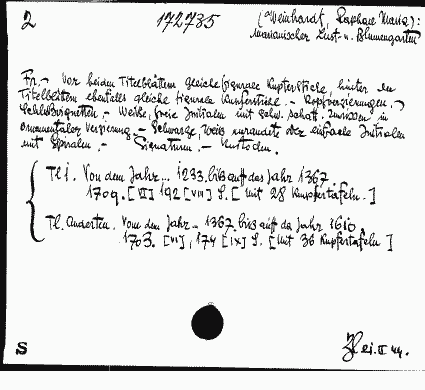 2 172735 (Weinhardt, Raphael Maria):
Marianischer Lust- u. Blumengarten
Fr. - Vor beiden Titelblättern gleiche figurale Kupferstiche, hinter den
Titelblättern ebenfalls gleiche figurale Kupferstiche. - Kopfverzierungen. -
Schlußvignetten. - Weiße, freie Initialen mit schw. schatt. in
ornamentaler Verzierung. - Schwarze, weiß umrandete oder einfache Initialen
mit Spiralen. - Signaturen. - Kustoden.
Tl 1. Von dem Jahr... 1233 biß auff das Jahr 1367.
1709. [VI] 192 [VIII] S. [Mit 28 Kupfertafeln.]
Tl. Anderten. Vom dem Jahr... 1367 biß auff das Jahr 1610.
1703. [VI], 174 [IX] S. [Mit 36 Kupfertafeln]
S 21.II 44.